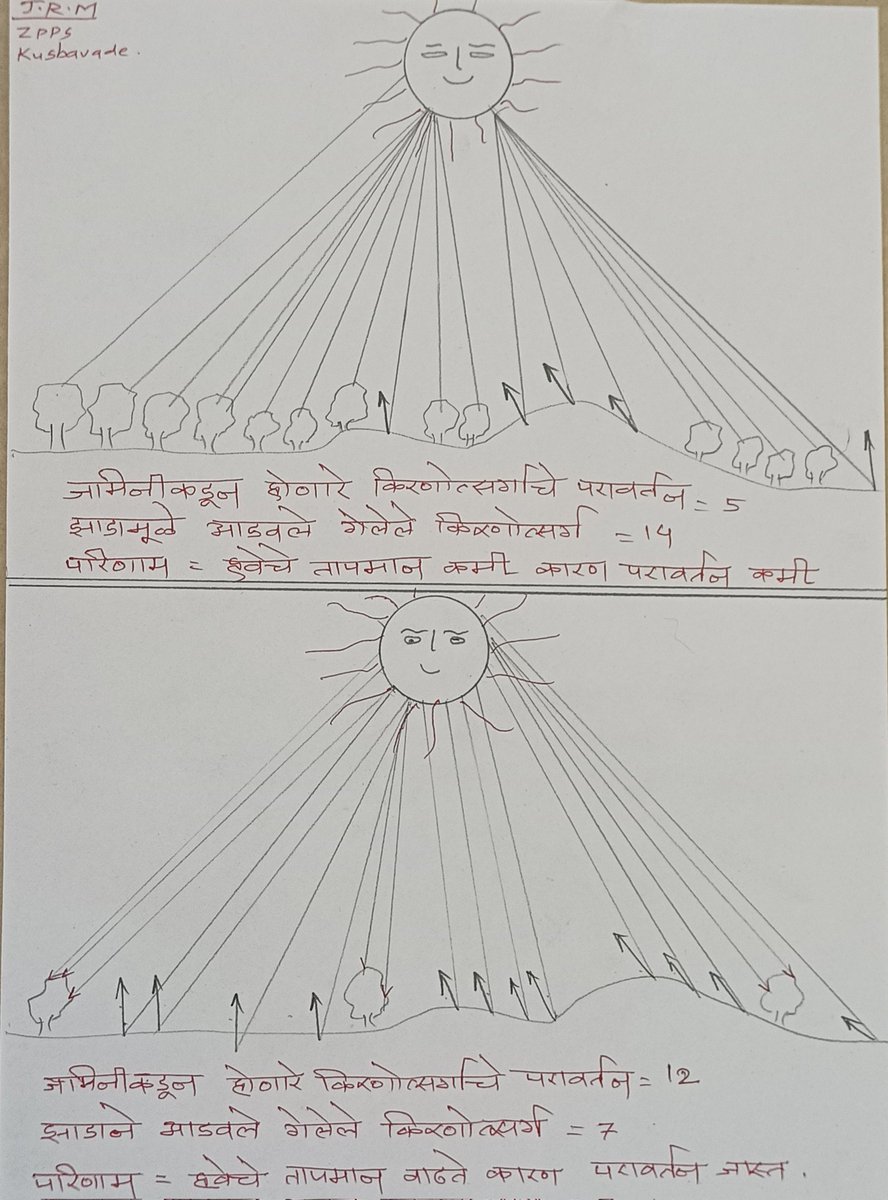 J.R.M
ZPPS
Kusbavade.
जमिनीकडून होणारे किरणोत्सर्गाचे परावर्तन = 5
झाडामूळे आडवले गेलेले किरणोत्सर्ग = 14
परिणाम = हवेचे तापमान कमी कारण परावर्तन कमी
जमिनीकडून होणारे किरणोत्सर्गाचे परावर्तन = 12
झाडाने आडवले गेलेले किरणोत्सर्ग = 7
परिणाम = हवेचे तापमान वाढते कारण परावर्तन जास्त.